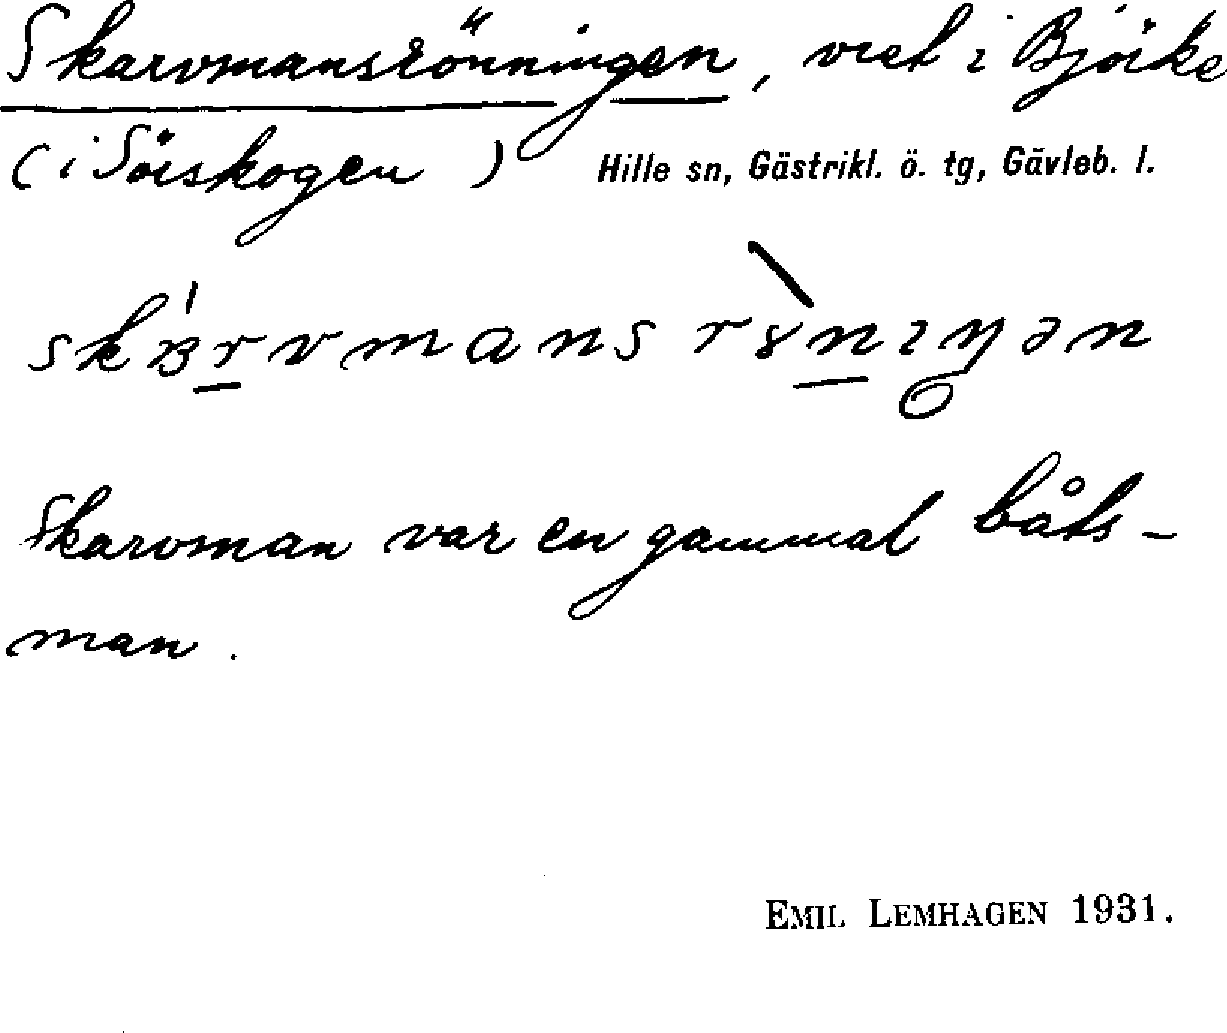 Skarvmansrönningen, vret i Björke
(i Sörskogen) Hille sn, Gästrikl. ö. tg, Gävleb. l.
Skarvman var en gammal båts-
man.
EMIL LEMHAGEN 1931.